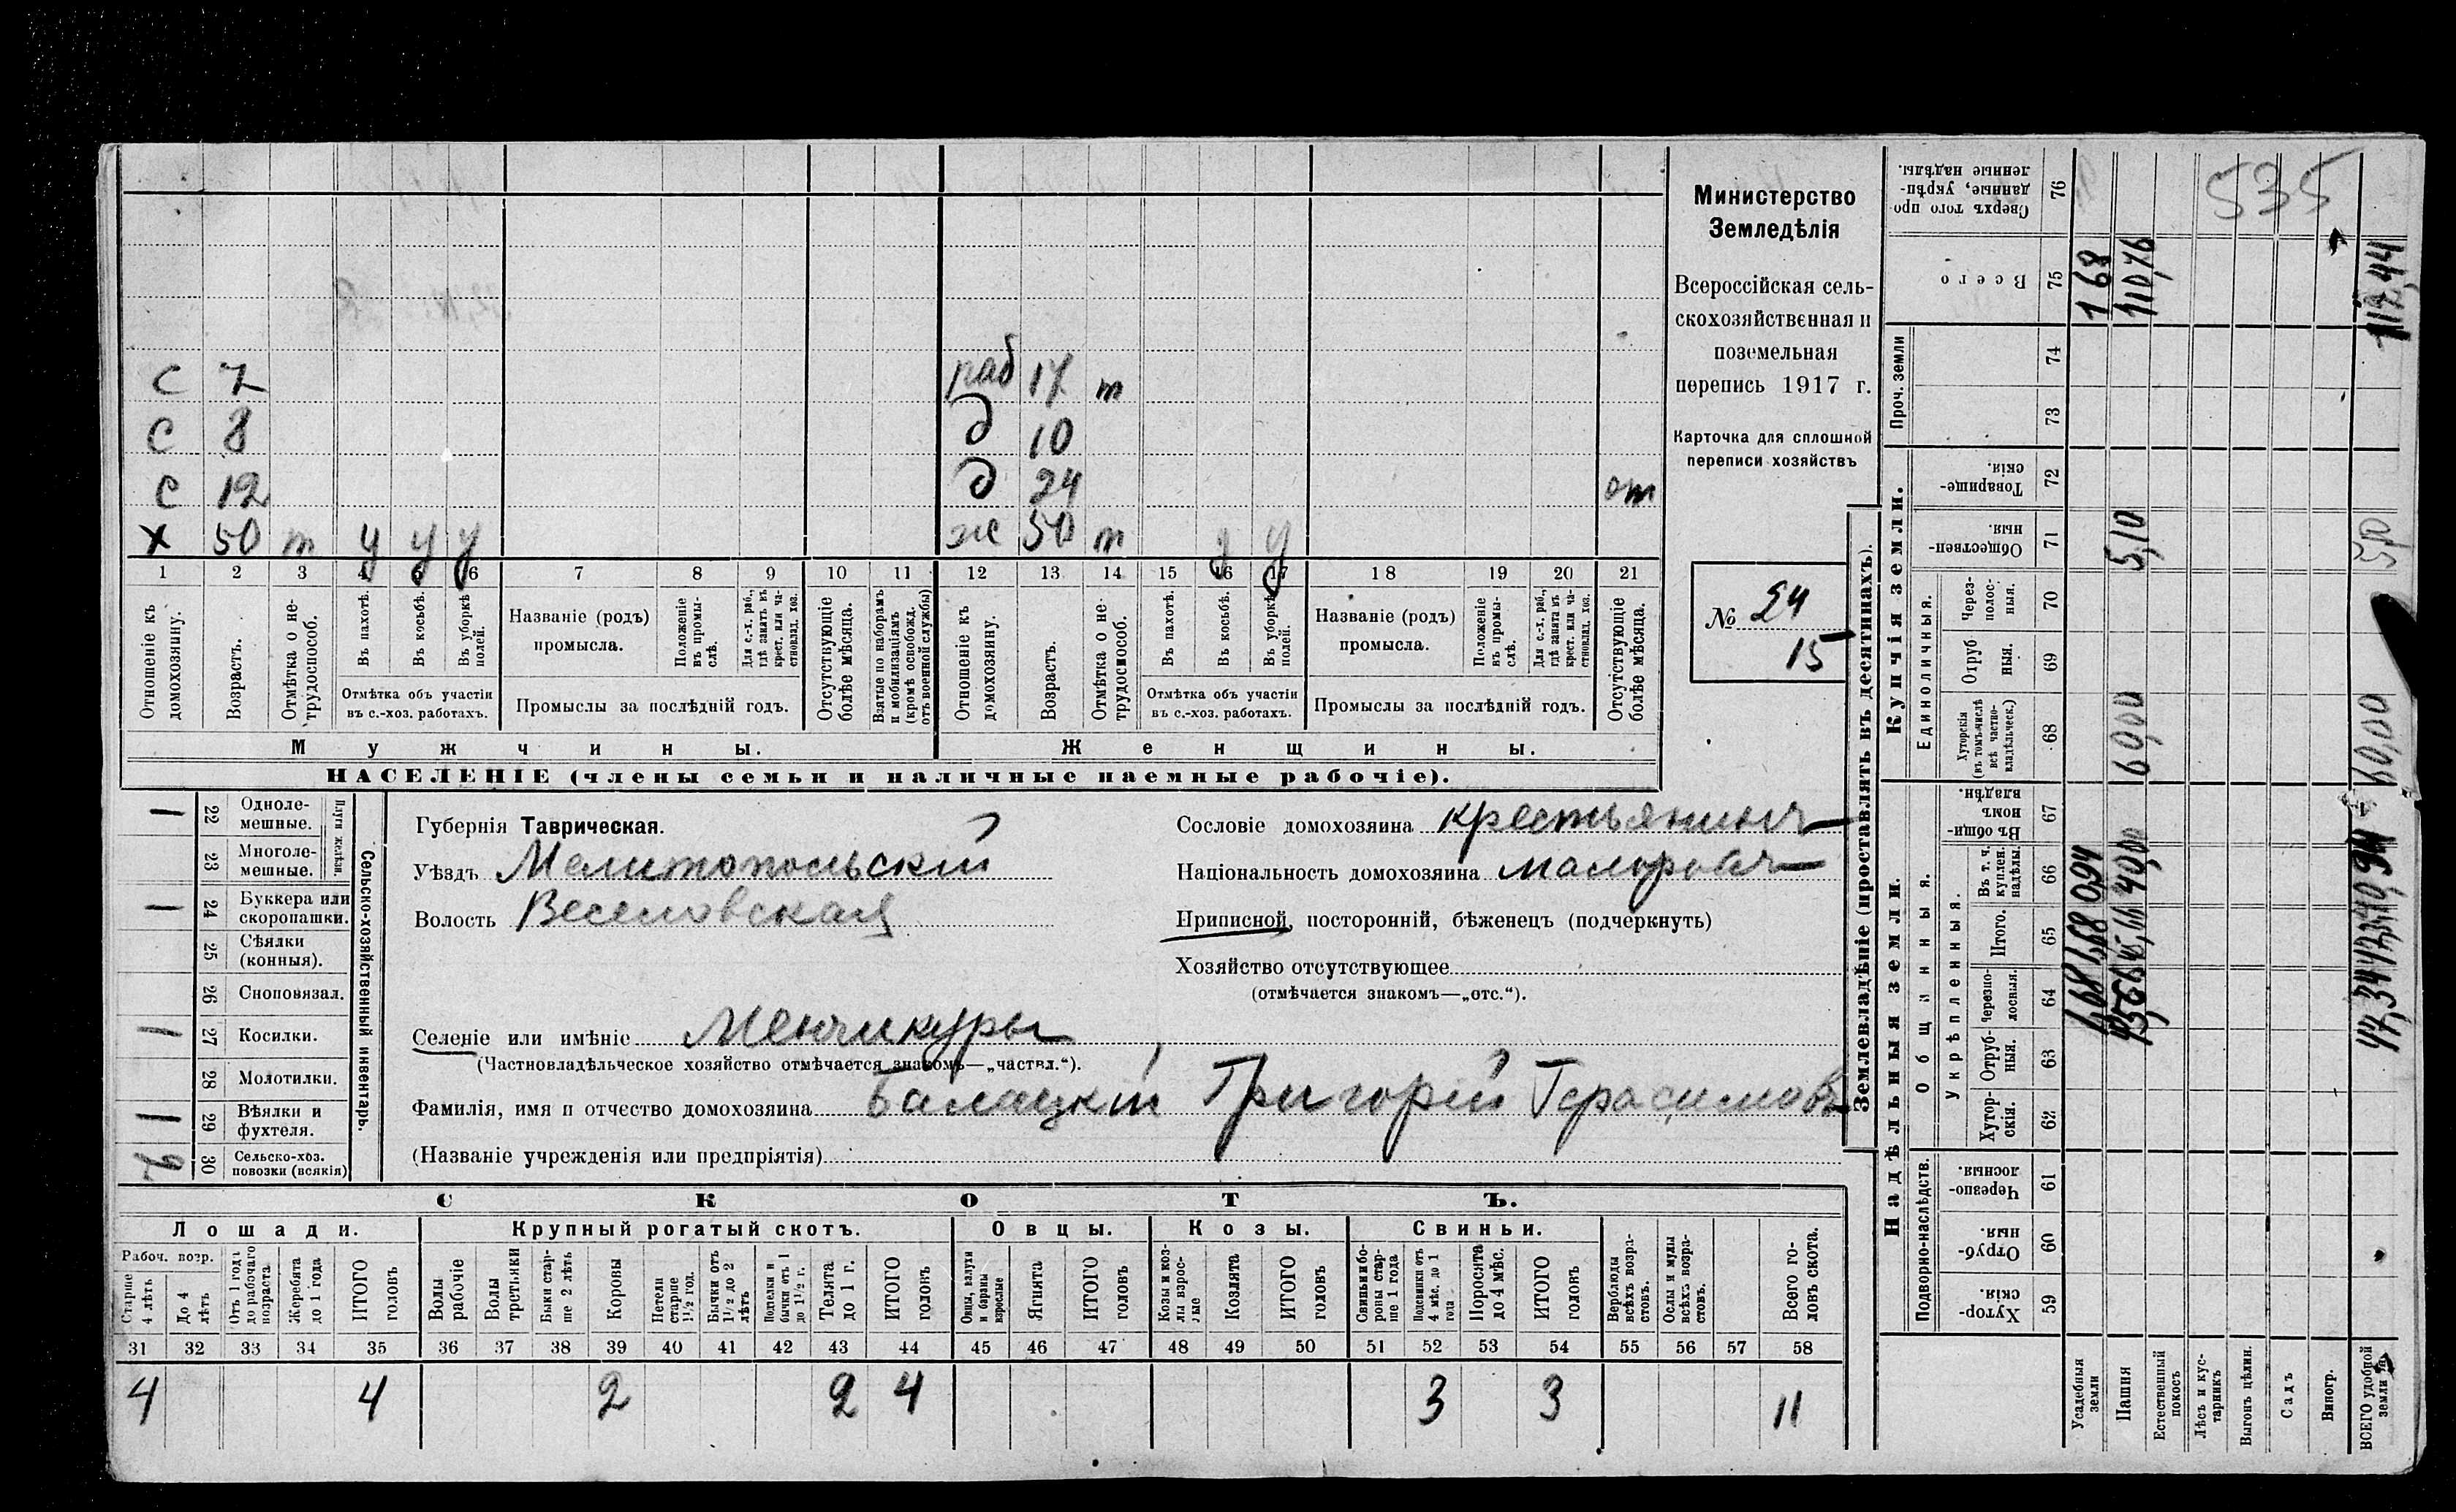 535
с 7 раб 17 т
с 8 д 10
с 12 д 24 от
х 50 т у у у ж 50 т у у
1 2 3 4 5 6 7 8 9 10 11 12 13 14 15 16 17 18 19 20 21
Отношеніе къ домохозяину.
Возрастъ.
Отмѣтка о нетрудоспособ.
Въ пахотѣ.
Въ косьбѣ.
Въ уборкѣ полей.
Отмѣтка объ участіи
въ с.-хоз. работахъ.
Названіе (родъ)
промысла.
Положеніе въ промыслѣ.
Для с.-х. раб., гдѣ занятъ въ крест. или частновлад. хоз.
Промыслы за послѣдній годъ.
Отсутствующіе болѣе мѣсяца.
Взятые по наборамъ и мобилизаціямъ (кромѣ освобожд. отъ военной службы)
Отношеніе къ домохозяину.
Возрастъ.
Отмѣтка о нетрудоспособ.
Въ пахотѣ.
Въ косьбѣ.
Въ уборкѣ полей.
Отмѣтка объ участіи
въ с.-хоз. работахъ.
Названіе (родъ)
промысла.
Положеніе въ промыслѣ.
Для с.-х. раб., гдѣ занята въ крест. или частновлад. хоз.
Промыслы за послѣдній годъ.
Отсутствующіе болѣе мѣсяца.
Мужчины.
Женщины.
НАСЕЛЕНІЕ (члены семьи и наличные наемные рабочіе).
Министерство
Земледѣлія
Всероссійская сель-
скохозяйственная и
поземельная
перепись 1917 г.
Карточка для сплошной
переписи хозяйствъ
№ 24
15
Сельско-хозяйственный инвентарь.
Плуги желѣзн.
1 22 Однолемешные.
23 Многолемешные.
1 24 Буккера или скоропашки.
25 Сѣялки (конныя).
26 Сноповязал.
1 27 Косилки.
28 Молотилки.
1 29 Вѣялки и фухтеля.
30 Сельско-хоз. повозки (всякія)
Губернія Таврическая.
Уѣздъ Мелитопольскій
Волость Веселовская
Селеніе или имѣніе Менчикуры
(Частновладѣльческое хозяйство отмѣчается знакомъ—„частвл.“).
Фамилія, имя и отчество домохозяина Балацкій Григорій Герасимовъ
(Названіе учрежденія или предпріятія)
Сословіе домохозяина крестьянинъ
Національность домохозяина малороссъ
Приписной, посторонній, бѣженецъ (подчеркнуть)
Хозяйство отсутствующее
(отмѣчается знакомъ—„отс.“).
СКОТЪ.
Лошади. Крупный рогатый скотъ. Овцы. Козы. Свиньи.
Рабоч. возр.
Старше 4 лѣтъ
До 4 лѣтъ
Отъ 1 года до рабочаго возраста
Жеребята до 1 года
ИТОГО головъ
Волы рабочіе
Волы третьяки
Быки старше 2 лѣтъ
Коровы
Нетели старше 1½ год.
Бычки отъ 1½ до 2 лѣтъ
Подтелки и бычки отъ 1 до 1½ г.
Телята до 1 г.
ИТОГО головъ
Овцы, валухи и бараны взрослые
Ягнята
ИТОГО головъ
Козы и козлы взрослые
Козлята
ИТОГО головъ
Свиньи и бороны старше 1 года
Подсвинки отъ 4 мѣс. до 1 года
Поросята до 4 мѣс.
ИТОГО головъ
Верблюды всѣхъ возрастовъ.
Ослы и мулы всѣхъ возрастовъ.
Всего головъ скота.
31 32 33 34 35 36 37 38 39 40 41 42 43 44 45 46 47 48 49 50 51 52 53 54 55 56 57 58
4 4 2 2 4 3 3 11
Землевладѣніе (проставлять въ десятинахъ).
Надѣльныя земли.
Купчія земли.
Проч. земли
Подворно-наслѣдств.
Общинныя.
Укрѣпленныя.
Единоличныя.
Хуторскія. 59
Отрубныя. 60
Черезполосныя. 61
Хуторскія. 62
Отрубныя. 63
Черезполосныя. 64
Итого. 65
Въ т. ч. куплен. надѣлы 66
Въ общинномъ владѣн. 67
Хуторскія (въ томъ числѣ всѣ частновладѣльческ.) 68
Отрубныя. 69
Черезполосныя. 70
Общественныя. 71
Товарищескія. 72
73
74
Всего 75
Сверхъ того проданные, укрѣпленные надѣлы. 76
Усадебныя земли 1,68 1,68 0,94 1 68
Пашня 60,00 5,10 110,76
Естественный покосъ
Лѣсъ и кустарникъ
Выгонъ цѣлин.
Садъ
Виногр.
ВСЕГО удобной земли 47,34 60,00 112,44